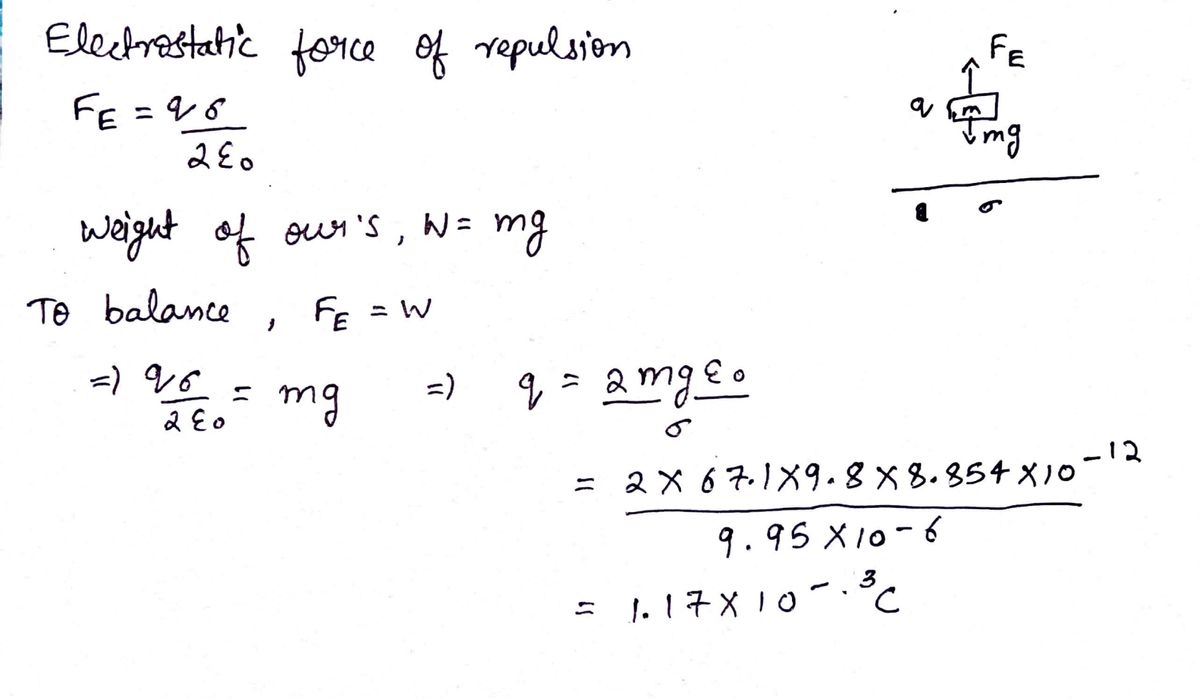 Electrostatic force of repulsion
FE = qσ
2ε0
FE
q m
mg
σ
Weight of our's, W = mg
To balance, FE = W
=) qσ = mg =) q = 2mgε0
2ε0 σ
= 2 × 67.1 × 9.8 × 8.854 × 10-12
9.95 × 10-6
= 1.17 × 10-.3 C